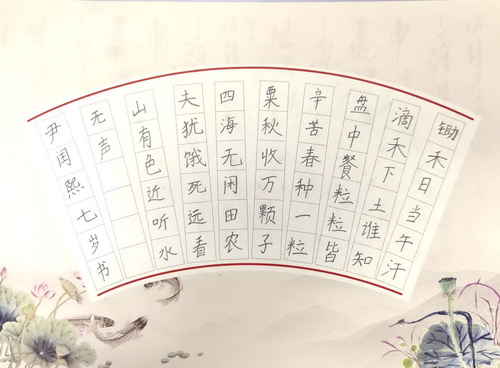 锄禾日当午汗
滴禾下土谁知
盘中餐粒粒皆
辛苦春种一粒
粟秋收万颗子
四海无闲田农
夫犹饿死远看
山有色近听水
无声
尹闰熙七岁书